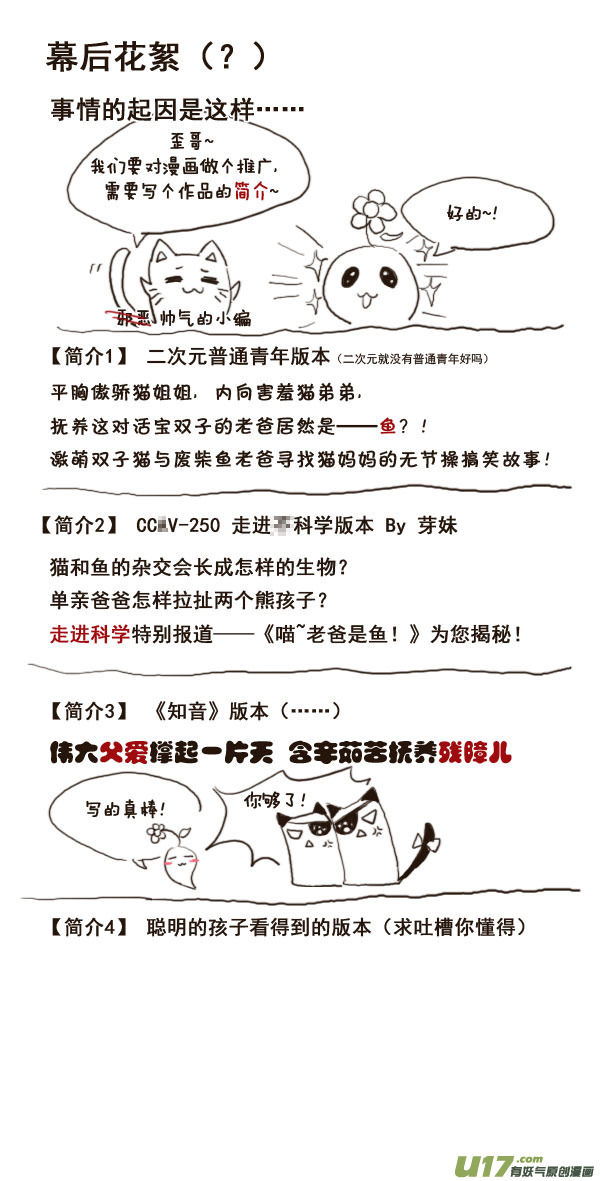 幕后花絮（？）
事情的起因是这样……
歪哥~
我们要对漫画做个推广,
需要写个作品的简介~
好的~!
邪恶 帅气的小编
【简介1】 二次元普通青年版本（二次元就没有普通青年好吗）
平胸傲骄猫姐姐, 内向害羞猫弟弟,
抚养这对活宝双子的老爸居然是——鱼?!
激萌双子猫与废柴鱼老爸寻找猫妈妈的无节操搞笑故事!
【简介2】 CC V-250 走进 科学版本 By 芽妹
猫和鱼的杂交会长成怎样的生物?
单亲爸爸怎样拉扯两个熊孩子?
走进科学特别报道——《喵~老爸是鱼！》为您揭秘!
【简介3】 《知音》版本（……）
伟大父爱撑起一片天 含辛茹苦抚养残障儿
写的真棒!
你够了!
【简介4】 聪明的孩子看得到的版本（求吐槽你懂得）
U17.com
有妖气原创漫画